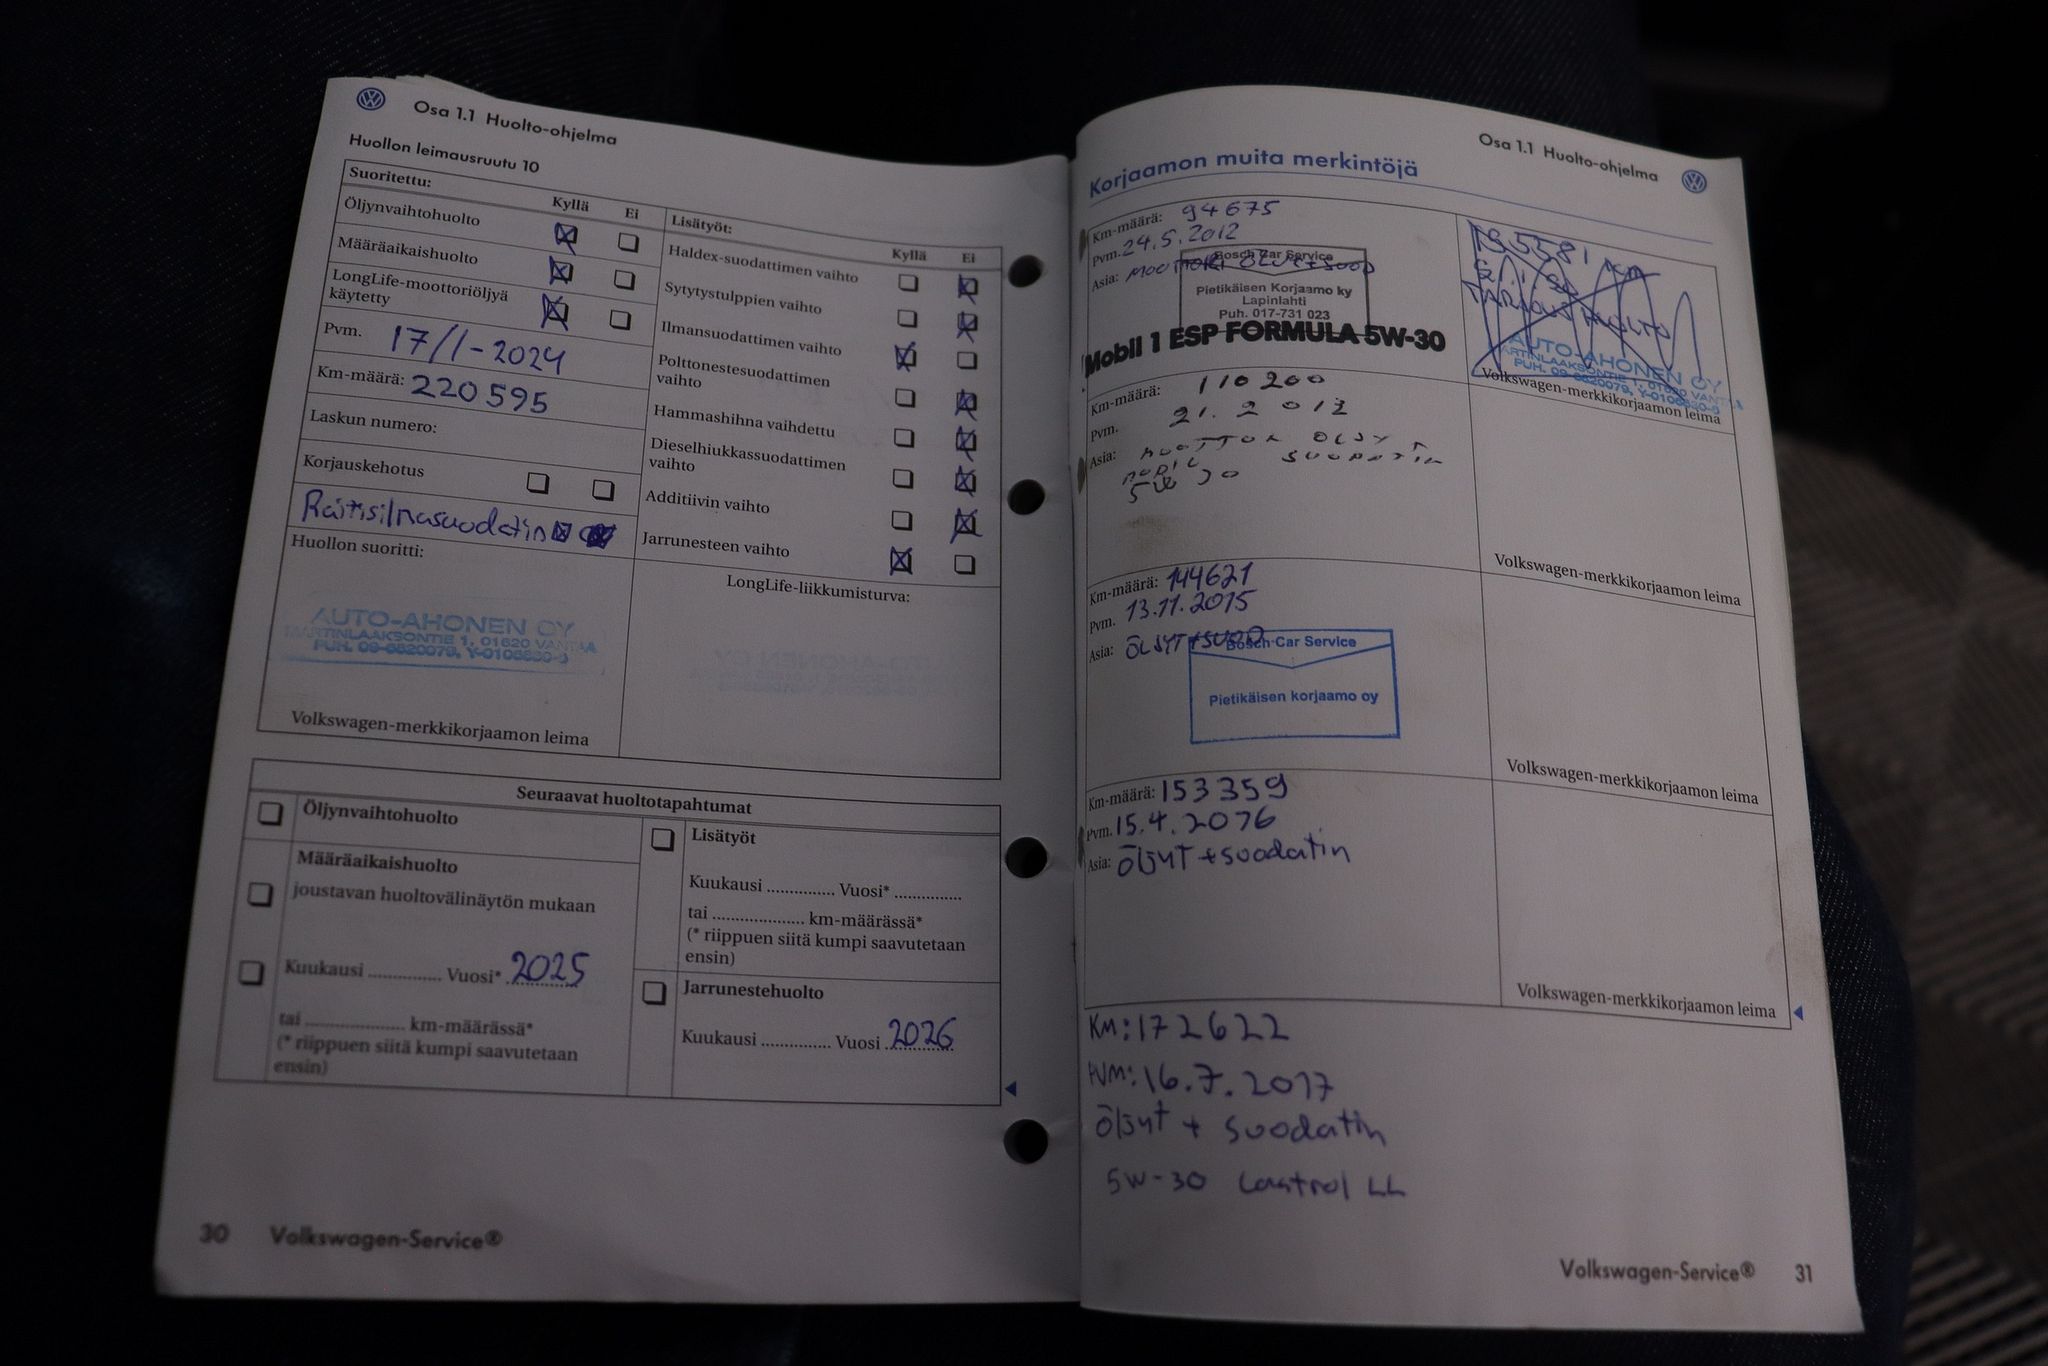 Osa 1.1 Huolto-ohjelma
Huollon leimausruutu 10
Suoritettu:
Kyllä Ei
Öljynvaihtohuolto
Määräaikaishuolto
LongLife-moottoriöljyä
käytetty
Pvm. 17/1-2024
Km-määrä: 220 595
Laskun numero:
Korjauskehotus
Raitisilmasuodatin
Huollon suoritti:
AUTO-AHONEN OY
MARTINLAAKSONTIE 1, 01620 VANTAA
PUH. 09-8520079, Y-0106830-9
Volkswagen-merkkikorjaamon leima
Lisätyöt:
Kyllä Ei
Haldex-suodattimen vaihto
Sytytystulppien vaihto
Ilmansuodattimen vaihto
Polttonestesuodattimen
vaihto
Hammashihna vaihdettu
Dieselhiukkassuodattimen
vaihto
Additiivin vaihto
Jarrunesteen vaihto
LongLife-liikkumisturva:
Seuraavat huoltotapahtumat
Öljynvaihtohuolto
Määräaikaishuolto
joustavan huoltovälinäytön mukaan
Kuukausi ............... Vuosi* 2025
tai ..................... km-määrässä*
(* riippuen siitä kumpi saavutetaan
ensin)
Lisätyöt
Kuukausi .............. Vuosi* ..............
tai ..................... km-määrässä*
(* riippuen siitä kumpi saavutetaan
ensin)
Jarrunestehuolto
Kuukausi .............. Vuosi 2026
30 Volkswagen-Service®
Osa 1.1 Huolto-ohjelma
Korjaamon muita merkintöjä
Km-määrä: 94675
Pvm. 24.5.2012
Asia: MOOTTORI ÖLJYT+SUOD
Bosch Car Service
Pietikäisen Korjaamo ky
Lapinlahti
Puh. 017-731 023
Mobil 1 ESP FORMULA 5W-30
KM
AUTO-AHONEN OY
MARTINLAAKSONTIE 1, 01620 VANTAA
Volkswagen-merkkikorjaamon leima
Km-määrä: 110 200
Pvm. 21. 2
Asia: MOOTTORI ÖLJYT
MOBIL SUODATIN
5W 30
Volkswagen-merkkikorjaamon leima
Km-määrä: 144621
Pvm. 13.11.2015
Asia: ÖLJYT+SUOD
Bosch Car Service
Pietikäisen korjaamo oy
Volkswagen-merkkikorjaamon leima
Km-määrä: 153359
Pvm. 15.4.2016
Asia: Öljyt +suodatin
Volkswagen-merkkikorjaamon leima
KM: 172622
PVM: 16.7.2017
öljyt + suodatin
5W-30 Castrol LL
Volkswagen-Service® 31